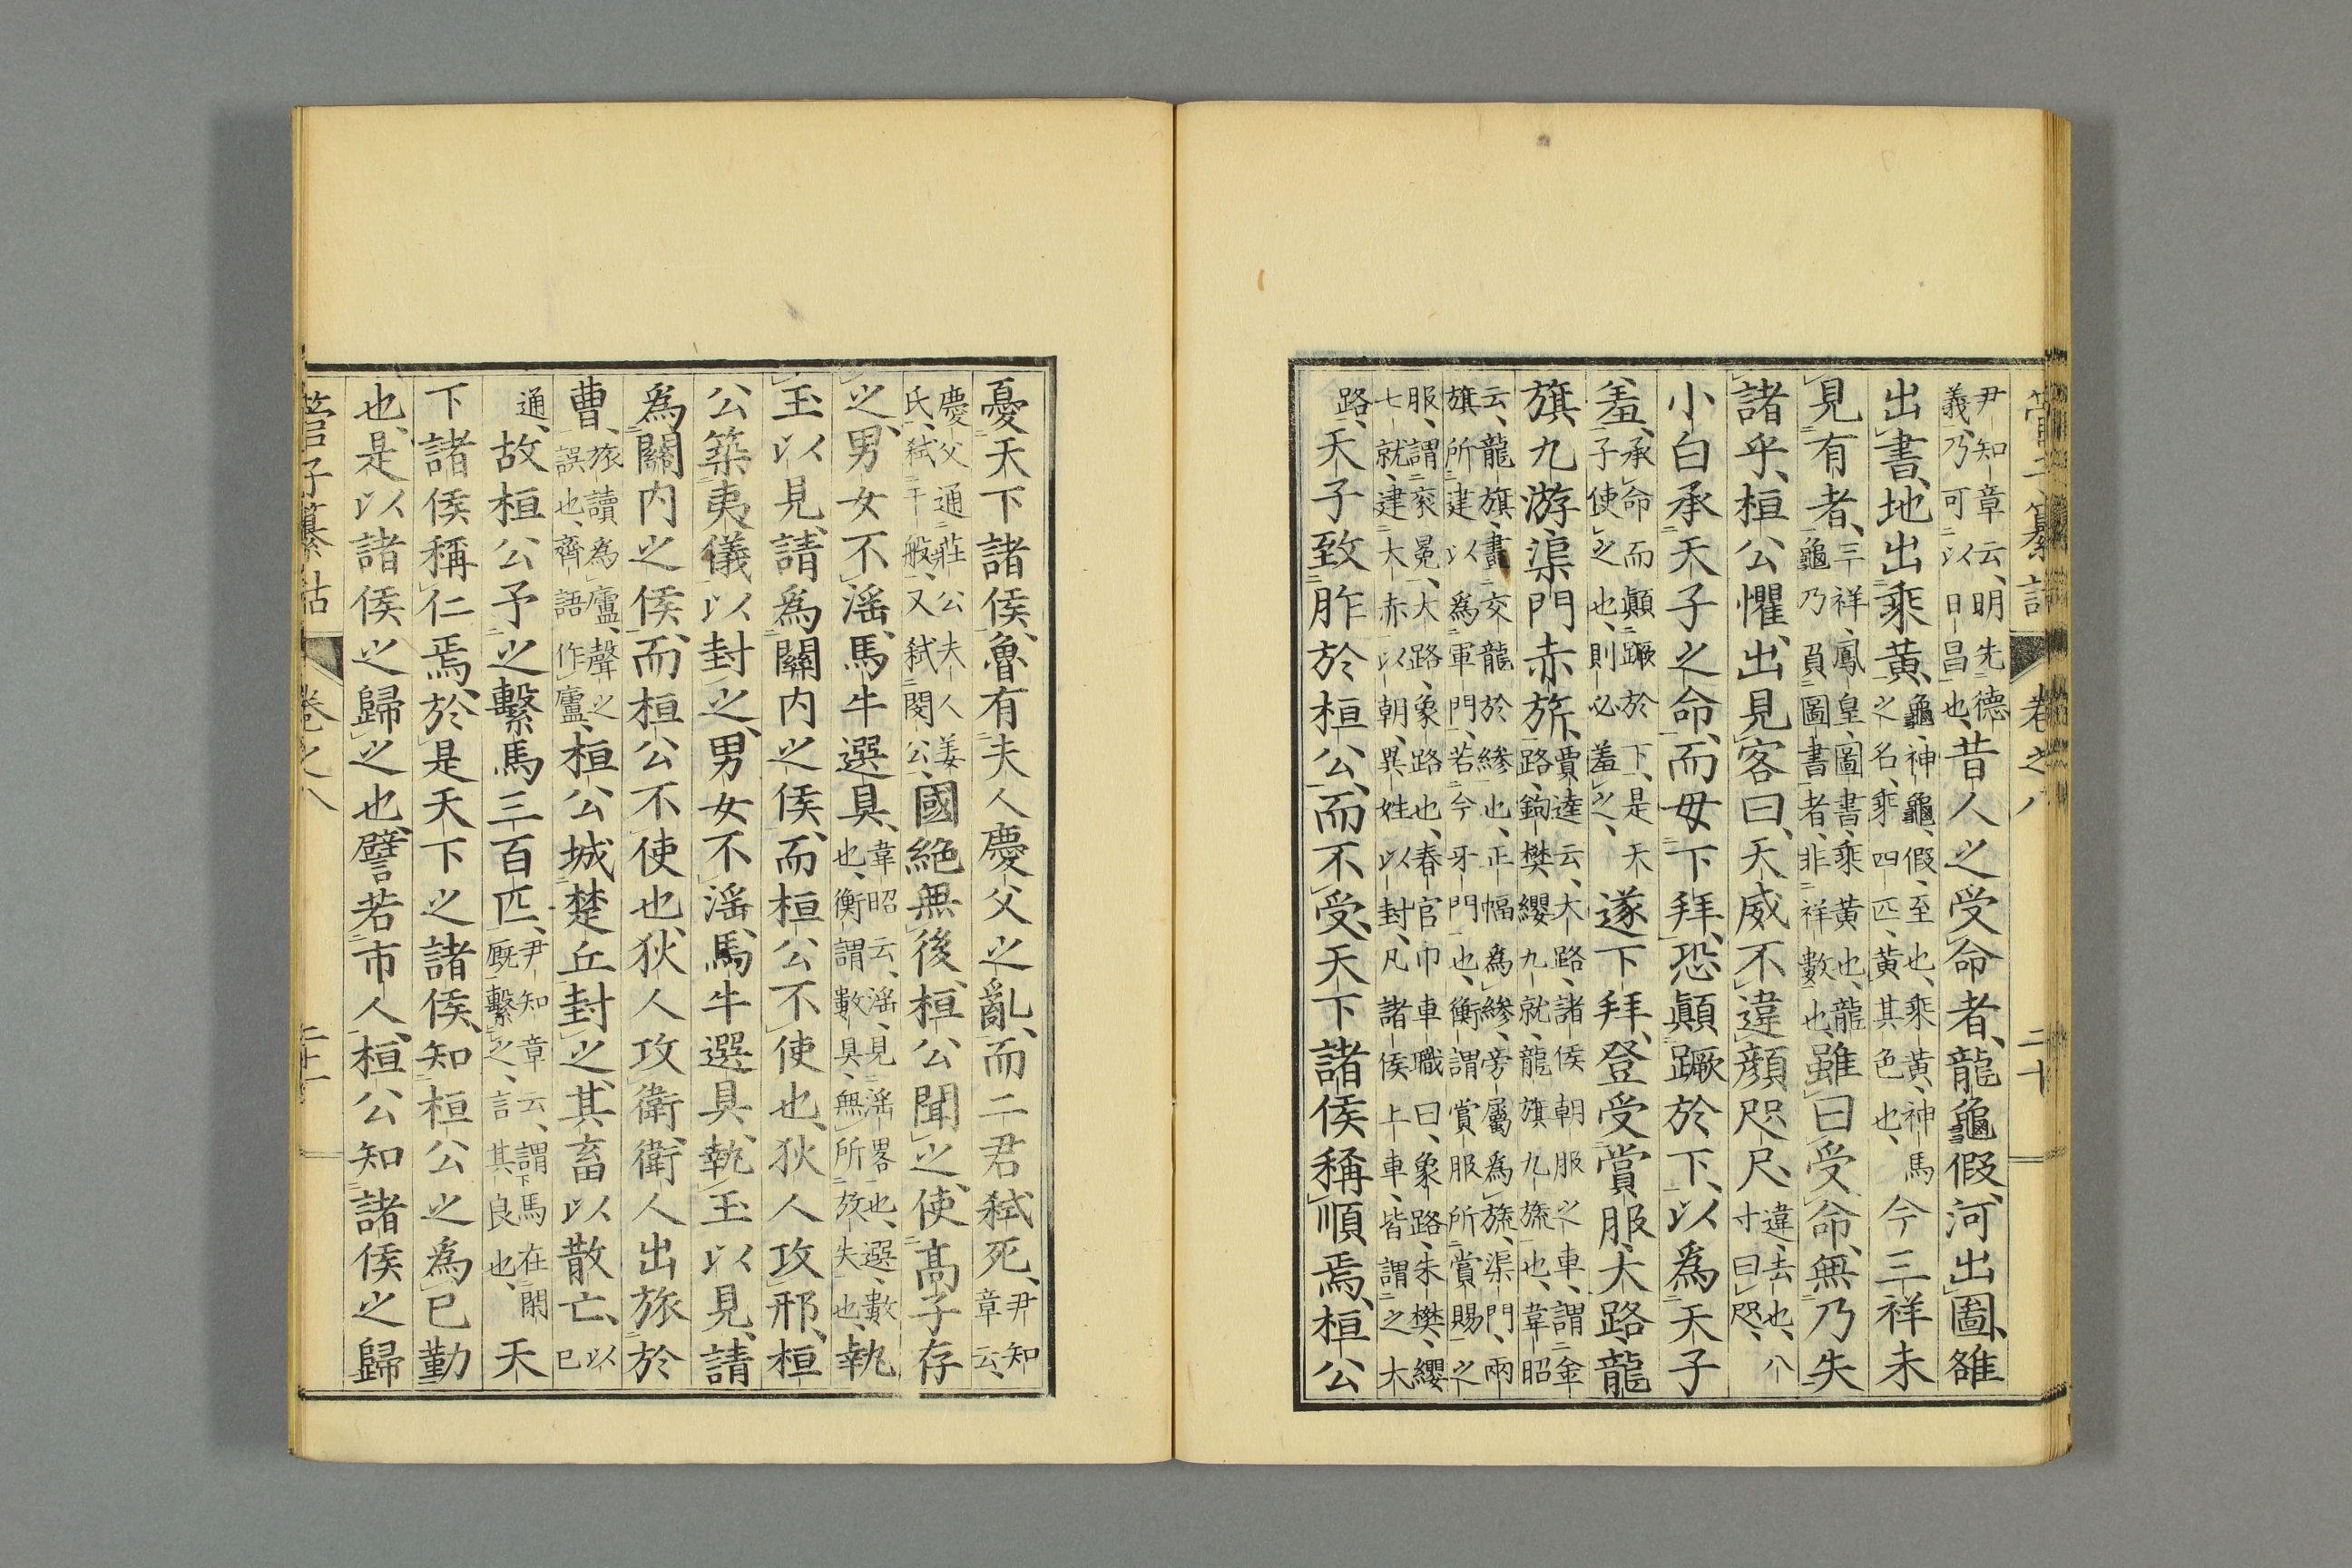 管子纂詁 卷之八 二十
尹知章云、明先德義、乃可以日昌也、昔人之受命者、龍龜假、河出圖、雒
出書、地出乘黃、龜、神龜、假、至也、乘黃、神馬之名、乘四匹、黃其色也、今三祥未
見有者、三祥、鳳皇、圖書、乘黃也、龍龜乃負圖書者、非祥數也、雖曰受命、無乃失
諸乎、桓公懼、出見客曰、天威不違顏咫尺、違、去也、八寸曰咫、
小白承天子之命、而毋下拜、恐顚蹶於下、以爲天子
羞、承命而顚蹶於下、是天子使之也、則必羞之、遂下拜、登受賞服、大路龍
旗九游、渠門赤旂、賈逵云、大路、諸侯朝服之車、謂金路、鉤樊纓九就、龍旗九旒也、韋昭
云、龍旗、畫交龍於縿也、正幅為縿、旁屬為旒、渠門、兩旗所建以為軍門、若今牙門也、衡謂賞服所賞賜之
服、謂袞冕、大路、象路也、春官巾車職曰、象路、朱樊、纓七就、建大赤以朝、異姓以封、凡諸侯上車、皆謂之大
路、天子致胙於桓公、而不受、天下諸侯稱順焉、桓公
憂天下諸侯、魯有夫人慶父之亂、而二君弑死、尹知章云、
慶父通莊公夫人姜氏、弑子般、又弑閔公、國絕無後、桓公聞之、使高子存
之、男女不淫、馬牛選具、韋昭云、淫、見淫畧也、選、數也、衡謂數具、無所放失也、執
玉以見、請爲關內之侯、而桓公不使也、狄人攻邢、桓
公築夷儀以封之、男女不淫、馬牛選具、執玉以見、請
爲關內之侯、而桓公不使也、狄人攻衛、衛人出旅於
曹、旅讀為廬、聲之誤也、齊語作廬、桓公城楚丘封之、其畜以散亡、以已
通、故桓公予之繫馬三百匹、尹知章云、謂馬在閑廐繫之、言其良也、天
下諸侯稱仁焉、於是天下之諸侯、知桓公之爲已勤
也、是以諸侯之歸之也、譬若市人、桓公知諸侯之歸
管子纂詁 卷之八 二十一